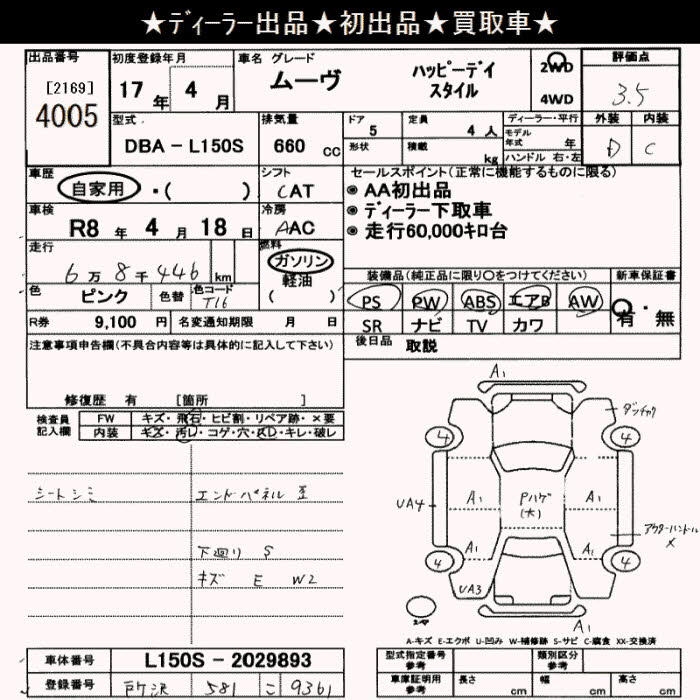 ★ディーラー出品★初出品★買取車★
出品番号
[2169]
4005
初度登録年月
17 年 4 月
車名 グレード
ムーヴ
ハッピーデイ
スタイル
2WD
4WD
評価点
3.5
外装 内装
D C
型式
DBA - L150S
排気量
660 cc
ドア
5
形状
定員
4 人
積載
kg
ディーラー・平行
モデル
年式 年
ハンドル 右・左
車歴
自家用 ・( )
シフト
CAT
セールスポイント(正常に機能するものに限る)
◉ AA初出品
◉ ディーラー下取車
◉ 走行60,000キロ台
車検
R8 年 4 月 18 日
冷房
AAC
走行
6万8千446 km
燃料
ガソリン
軽油
( )
色
ピンク
色替
色コード
T16
装備品(純正品に限り〇をつけてください)
PS PW ABS エアB AW
SR ナビ TV カワ
新車保証書
有・無
R券 9,100 円
名変通知期限 月 日
後日品 取説
注意事項申告欄(不具合内容等は具体的に記入して下さい)
修復歴 有 [箇所 ]
検査員
記入欄
FW キズ・飛石・ヒビ割・リペア跡・×要
内装 キズ・汚レ・コゲ・穴・スレ・キレ・破レ
シートシミ
エンドパネル 歪
下廻り S
キズ E W2
A1
タンチャク
4 4
UA4
A1
Pハゲ
(大)
A1
アウターハンドル
×
A1
A1
4 4
UA3
A1
スペヤ
A-キズ E-エクボ U-凹み W-補修跡 S-サビ C-腐食 XX-交換済
車体番号
L150S - 2029893
登録番号
所沢 581 こ 9361
型式指定番号
参考
類別区分
参考
車庫証明用
参考
長さ cm
幅 cm
高さ cm